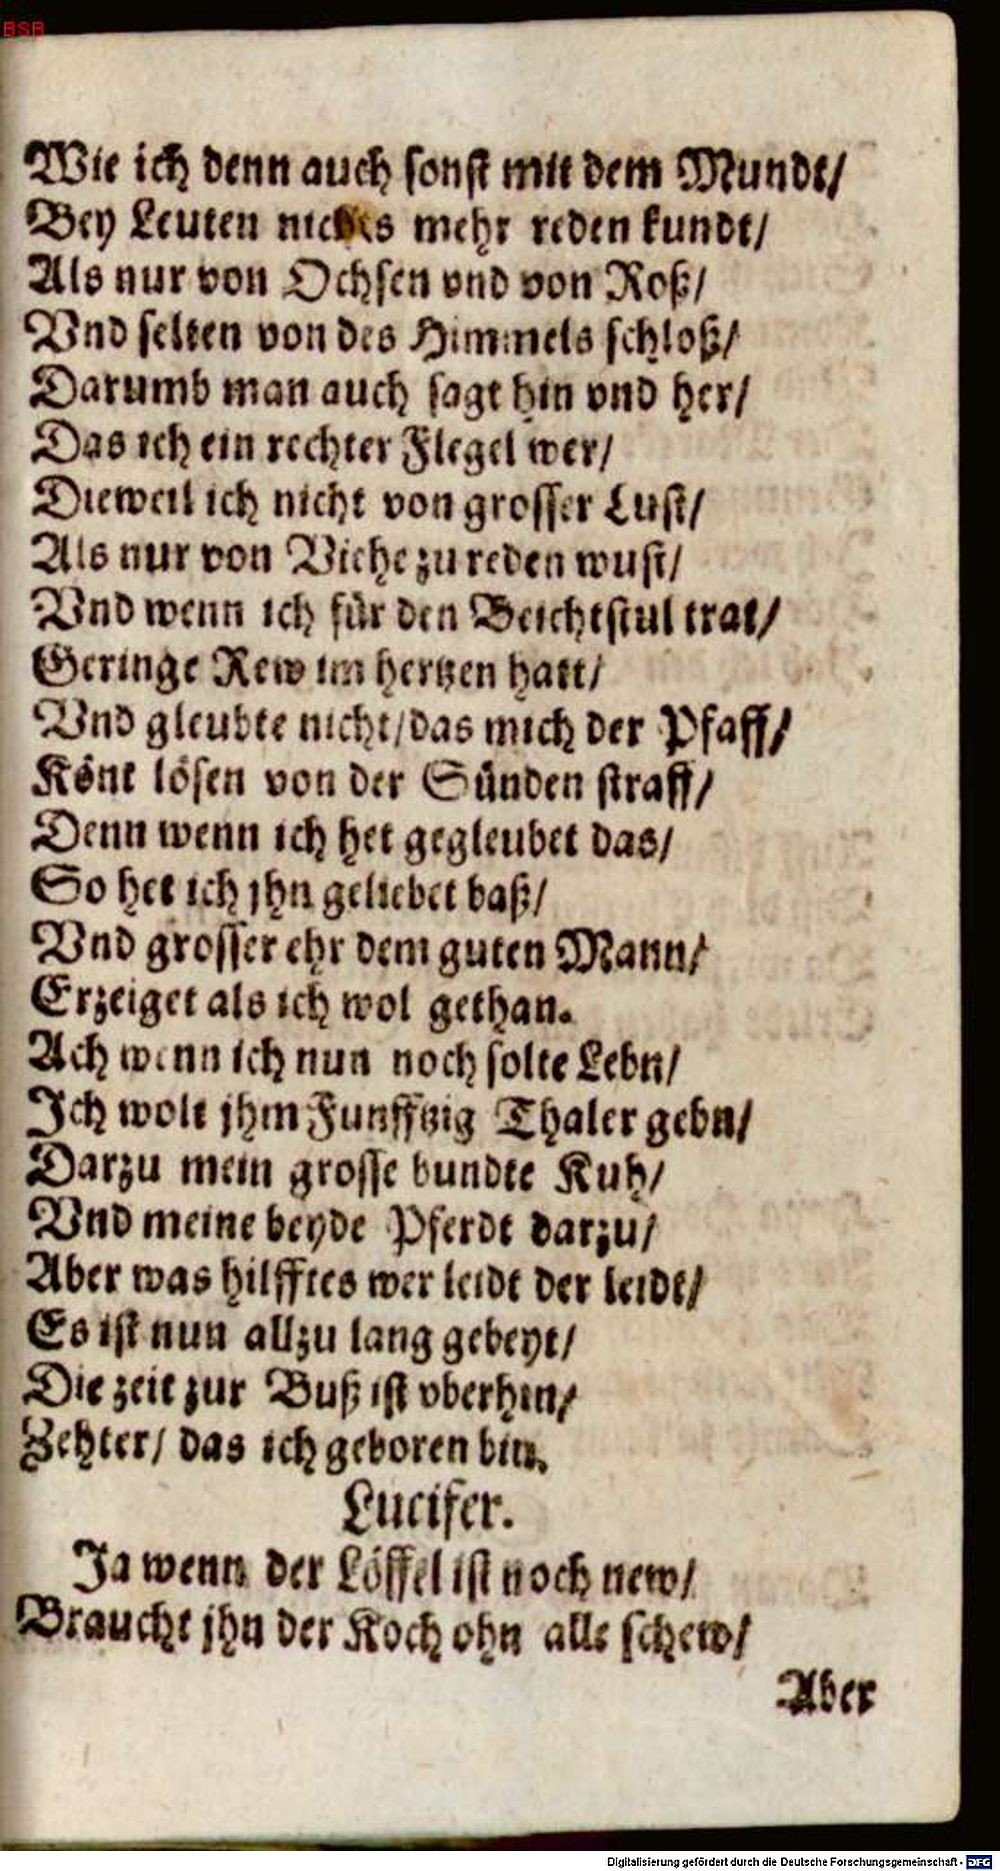 BSB
Wie ich denn auch sonst mit dem Mundt/
Bey Leuten nichts mehr reden kundt/
Als nur von Ochsen vnd von Roß/
Vnd selten von des Himmels schloß/
Darumb man auch sagt hin vnd her/
Das ich ein rechter Flegel wer/
Dieweil ich nicht von grosser Lust/
Als nur von Viehe zu reden wust/
Vnd wenn ich für den Beichtstul trat/
Geringe Rew im hertzen hatt/
Vnd gleubte nicht/das mich der Pfaff/
Könt lösen von der Sünden straff/
Denn wenn ich het gegleubet das/
So het ich jhn geliebet baß/
Vnd grosser ehr dem guten Mann/
Erzeiget als ich wol gethan.
Ach wenn ich nun noch solte Lebn/
Ich wolt jhm Funfftzig Thaler gebn/
Darzu mein grosse bundte Kuh/
Vnd meine beyde Pferdt darzu/
Aber was hilfftes wer leidt der leidt/
Es ist nun allzu lang gebeyt/
Die zeit zur Buß ist vberhin/
Zehter/ das ich geboren bin.
Lucifer.
Ja wenn der Löffel ist noch new/
Braucht jhn der Koch ohn alle schew/
Aber
Digitalisierung gefördert durch die Deutsche Forschungsgemeinschaft - DFG